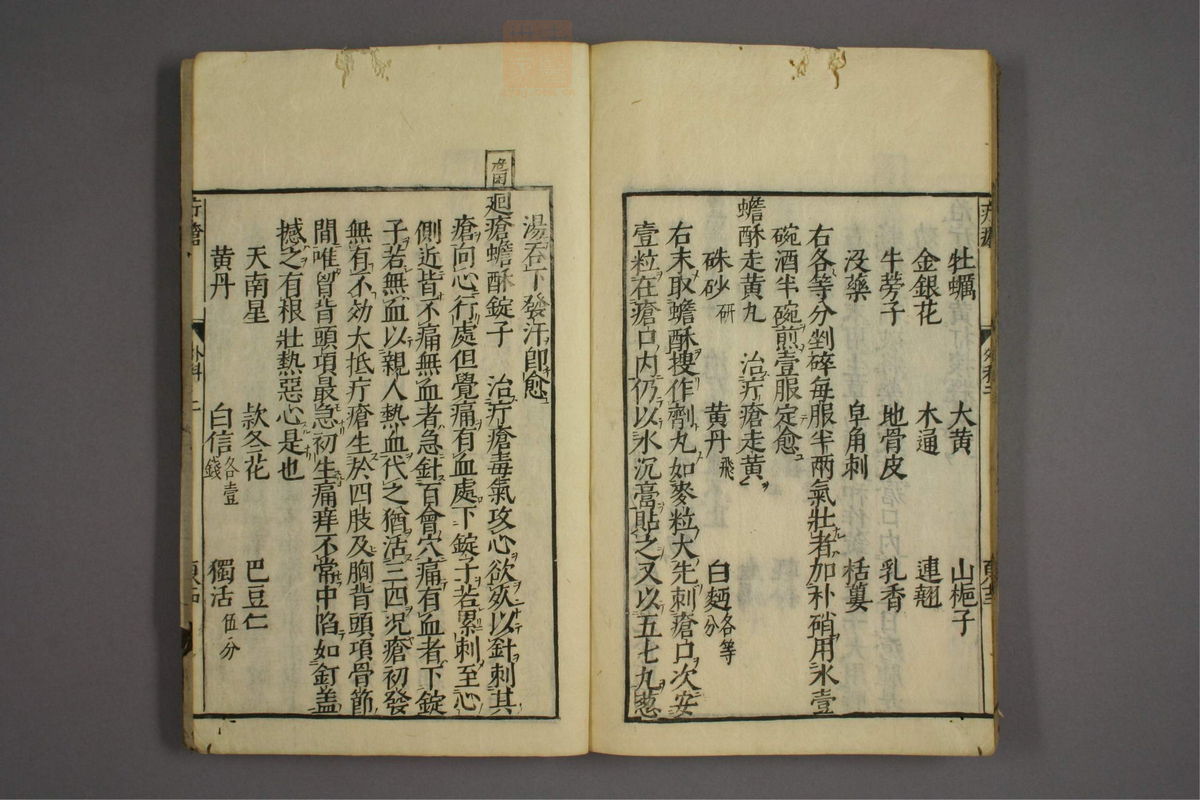 牡蠣 大黄 山梔子
金銀花 木通 連翹
牛蒡子 地骨皮 乳香
没藥 皁角刺 栝蔞
右各等分剉碎每服半兩氣壯者加朴硝用水壹
碗酒半碗煎壹服定愈
蟾酥走黄丸 治疔瘡走黄
硃砂研 黄丹飛 白麵各等分
右末取蟾酥搜作劑丸如麥粒大先刺瘡口次安
壹粒在瘡口内仍以水沉膏貼之又以五七九葱
湯吞下發汗即愈
廻瘡蟾酥錠子 治疔瘡毒氣攻心欲死以針刺其
瘡向心行處但覺痛有血處下錠子若累刺至心
側近皆不痛無血者急針百會穴痛有血者下錠
子若無血以親人熱血代之猶活三四况瘡初發
無有不効大抵疔瘡生於四肢及胸背頭項骨節
間唯胷背頭項最急初生痛痒不常中陷如釘盖
撼之有根壯熱惡心是也
天南星 款冬花 巴豆仁
黄丹 白信各壹錢 獨活伍分
外科 二